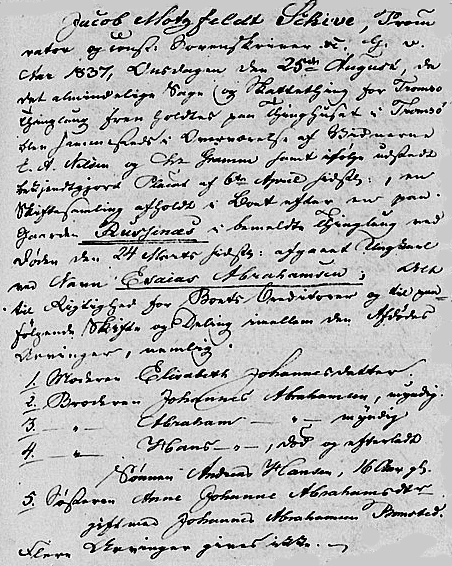 Jacob Motzfeldt Schive, Procu
rator og const: Sorenskriver &c. G. v.
Aar 1837, Onsdagen den 25de August, da
det almindelige Sage og Skattething for Tromsø
Thinglaug frem holdtes paa Thinghuset i Tromsø
blev sammesteds i Overværelse af Vidnerne
L. A. Nilsen og Chr Hamme samt ifølge udstedt
bekjendtgjort Placat af 6te April sidstl:, en
Skiftesamling afholdt i Boet efter en paa
Gaarden Russenæs i bemeldte Thinglaug ved
Døden den 24 Marts sidstl: afgaaet Ungkarl
ved Navn Esaias Abrahamsen; Alt
til Rigtighed for Boets Creditorer og til paa-
følgende Skifte og Deling imellem den Afdødes
Arvinger, nemlig:
1. Moderen Elisabeth Johannesdatter
2. Broderen Johannes Abrahamsen, myndig.
3. -"- Abraham -"- myndig
4. -"- Hans -"-, død og efterladt
Sønnen Andreas Hansen, 16 Aar gl.
5 Søsteren Anne Johanne Abrahamsdtr
gift med Johannes Abrahamsen
Flere Arvinger gives ikke.